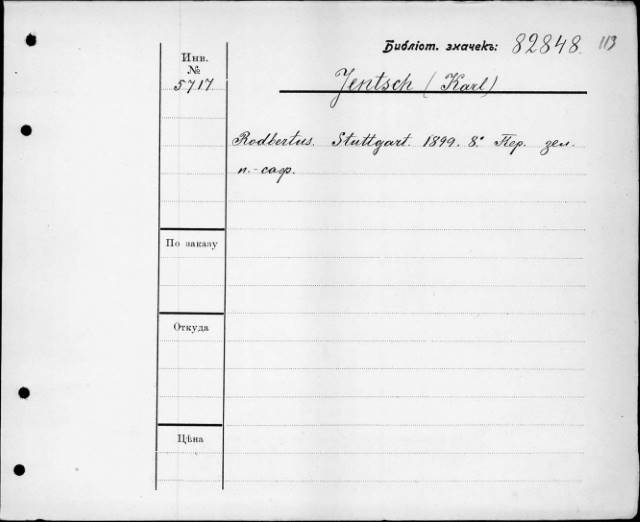 Библіот. значекъ: 82848. 113
Инв.
№
5717
Jentsch (Karl)
Rodbertus. Stuttgart. 1899. 8.° Пер. зел.
п.-саф.
По заказу
Откуда
Цѣна